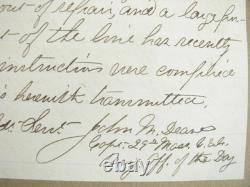 out of repair, and a large
t of the line has recently
instructions were complied
is herewith transmitted,
Servt.
John M. Deane
Capt. 29th Mass. Vols.
Off. of the Day